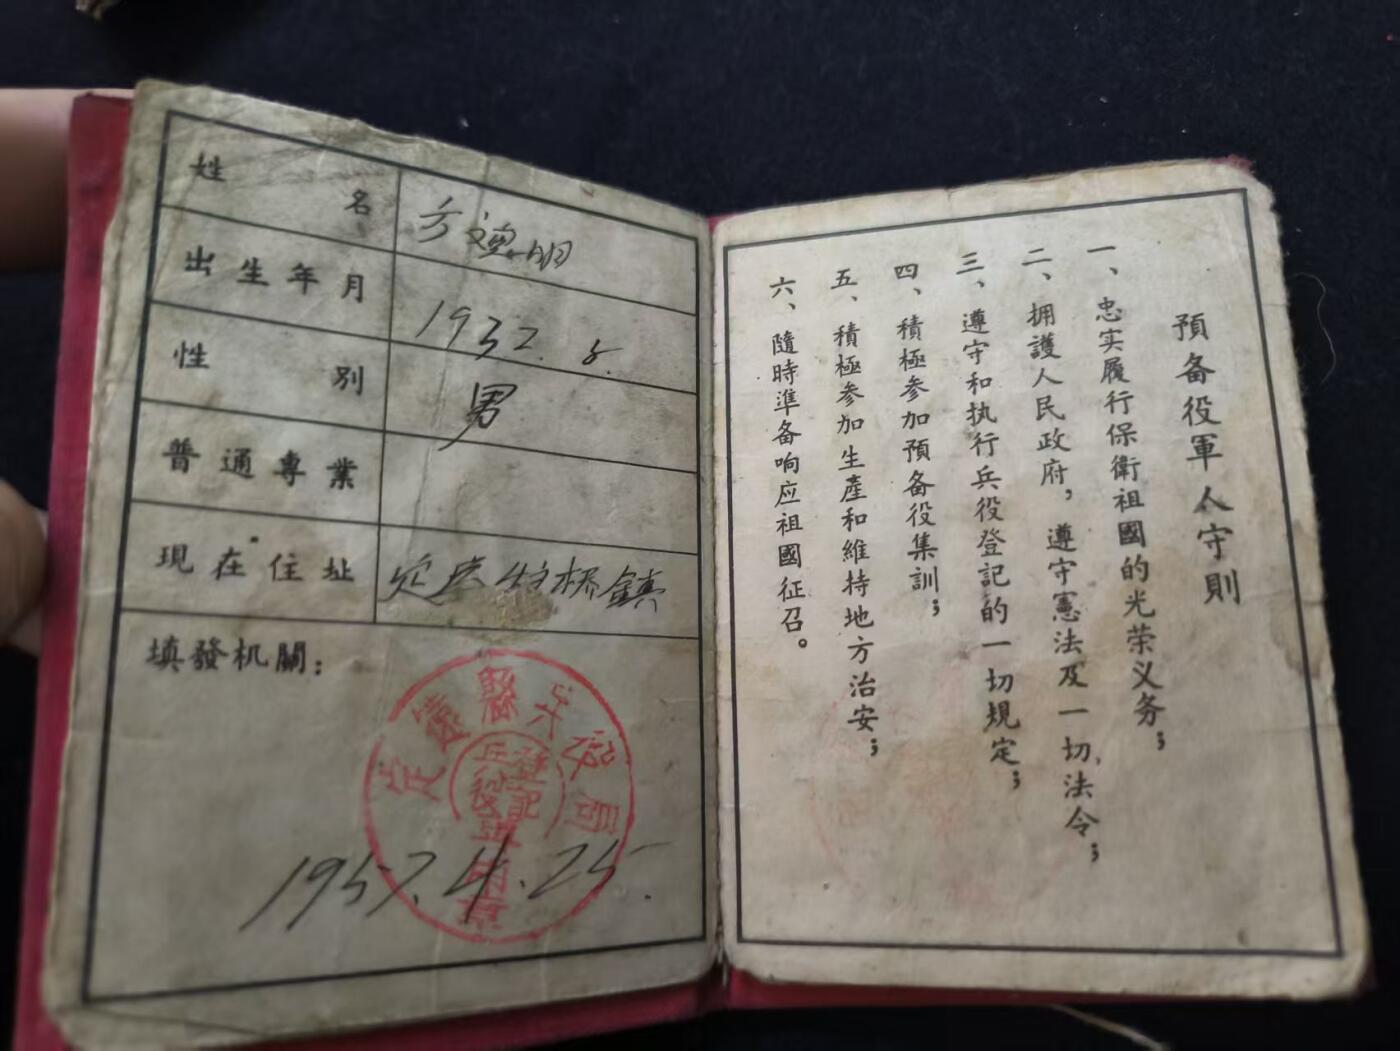 姓名 方文宽明
出生年月 1932.8.
性别 男
普通專業
現在住址 定远炉桥鎮
填發机關：
定遠縣兵役局
兵役登記專用章
1957.4.25.
預备役軍人守則
一、忠实履行保衛祖國的光荣义务；
二、拥護人民政府，遵守憲法及一切法令；
三、遵守和执行兵役登記的一切規定；
四、積極参加預备役集訓；
五、積極参加生產和維持地方治安；
六、隨時準备响应祖國征召。